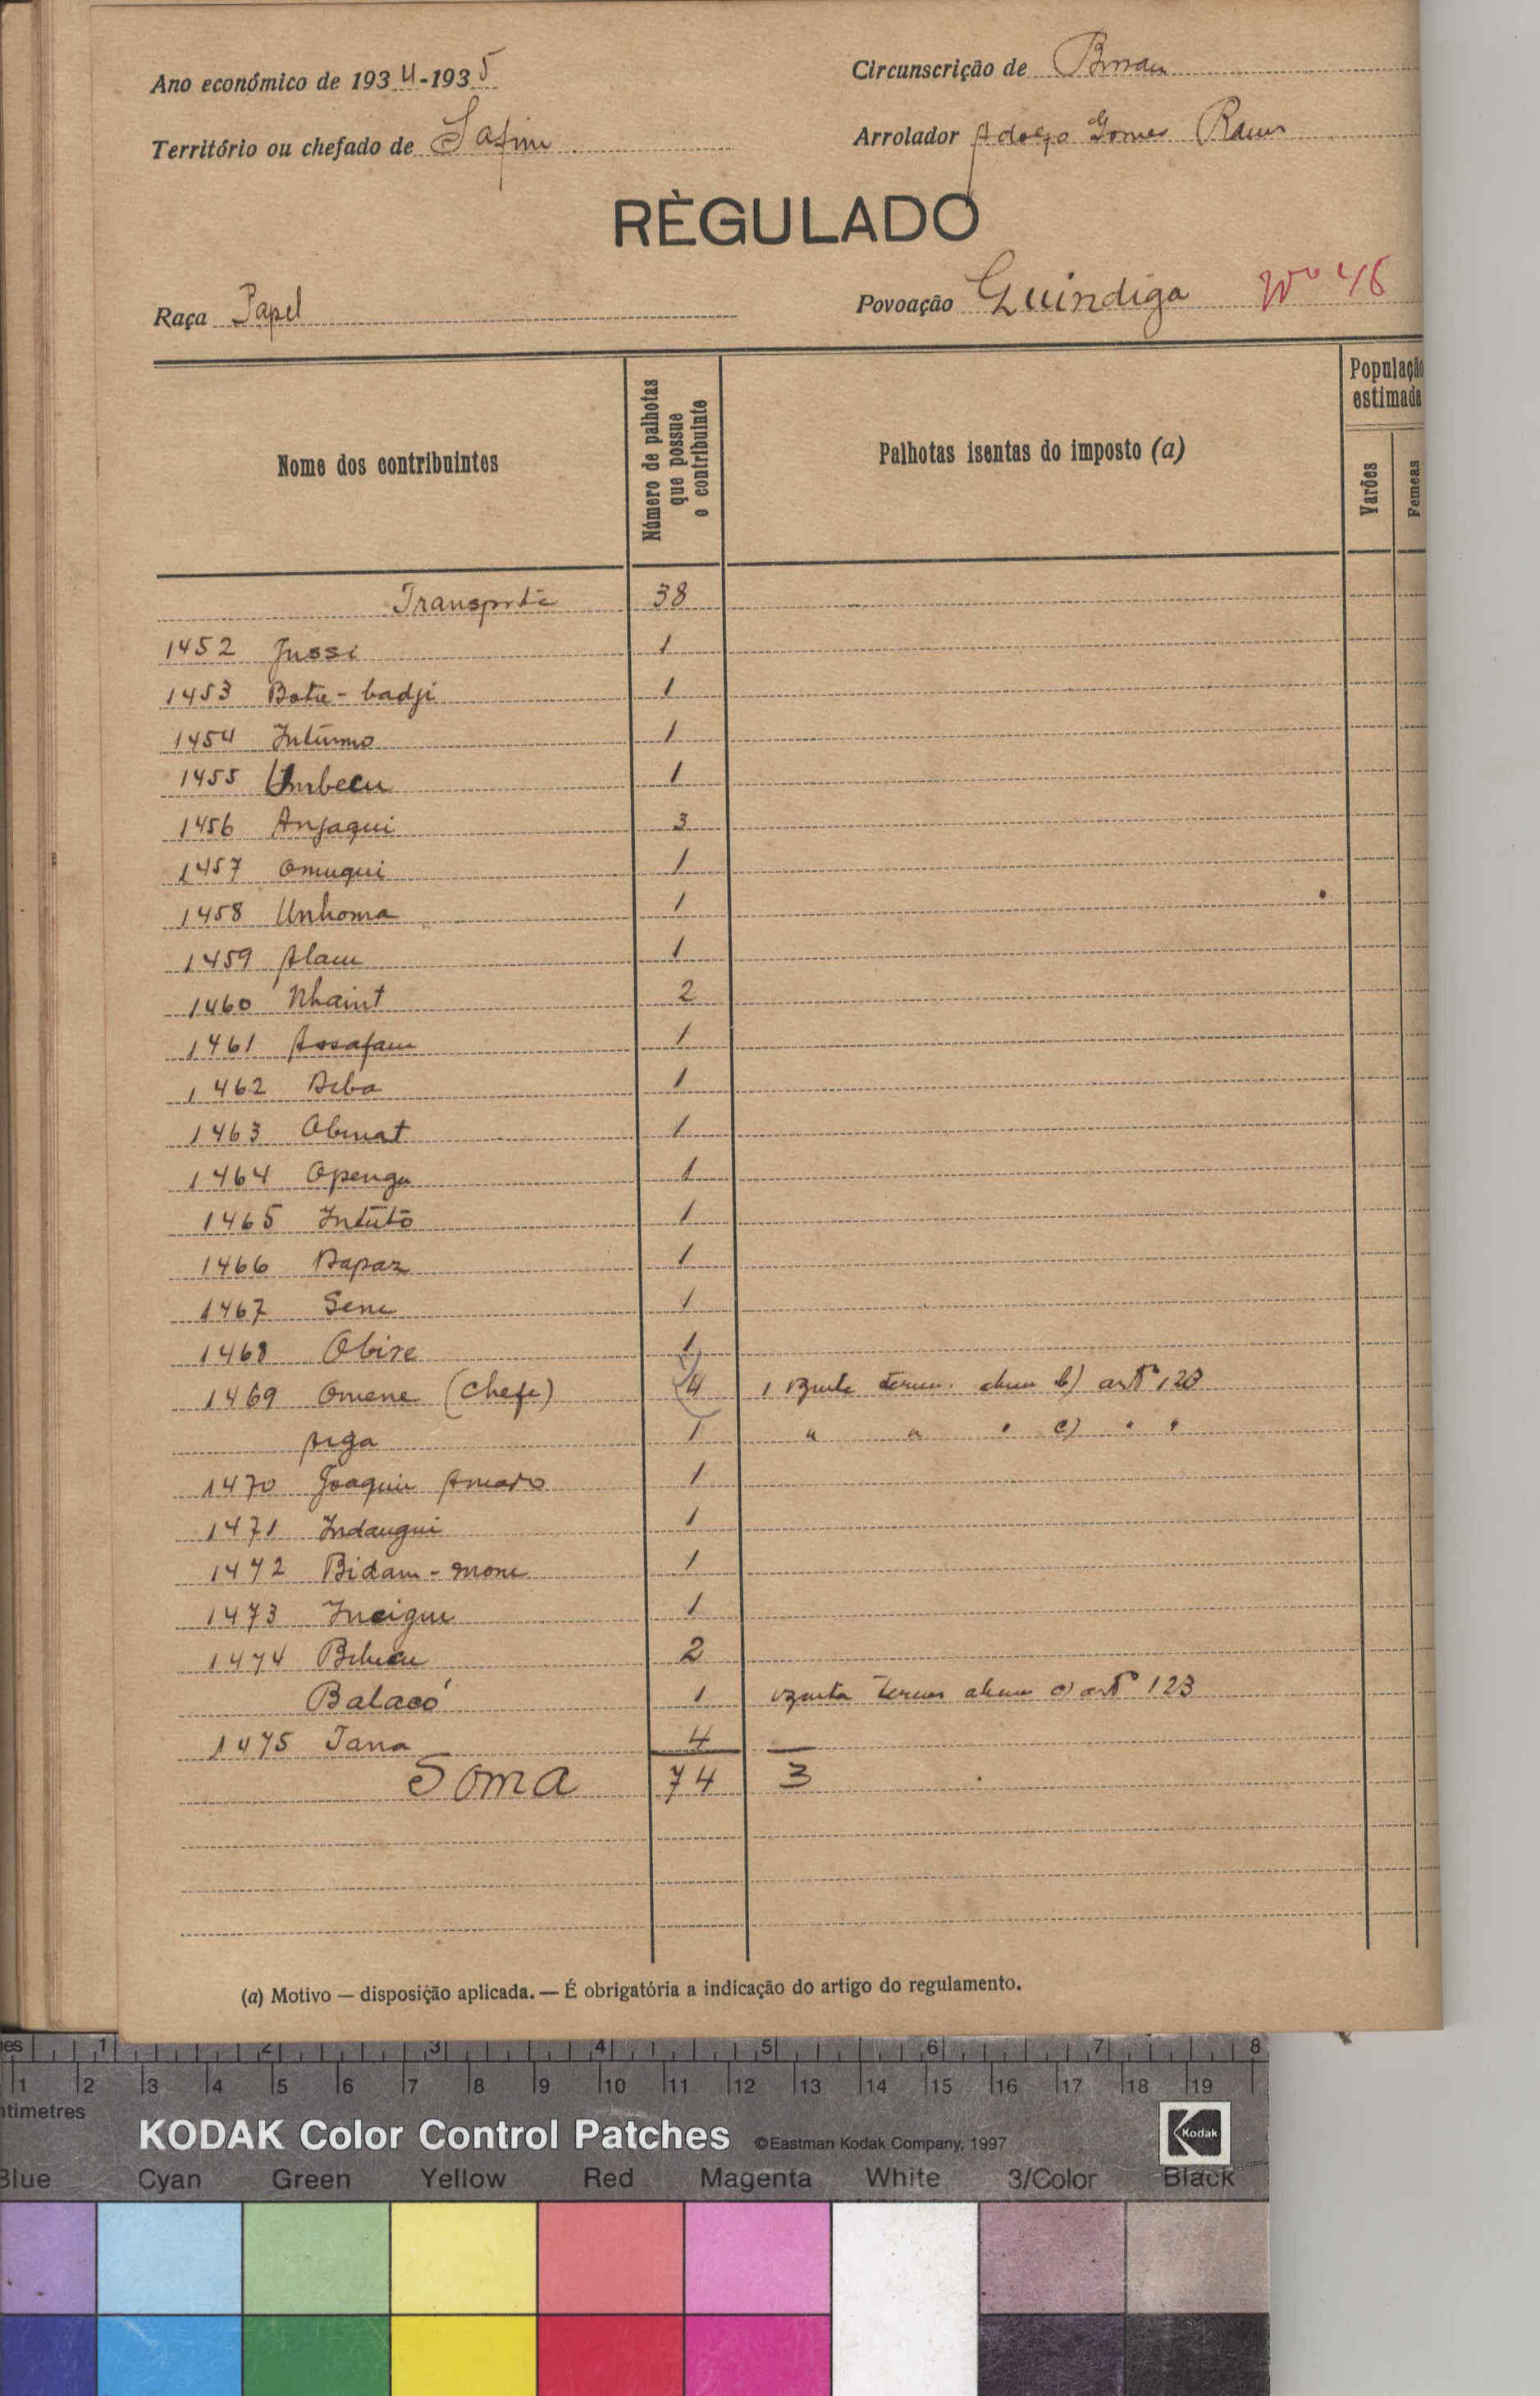 Ano económico de 1934-1935
Circunscrição de Bissau
Território ou chefado de Safim
Arrolador Adolfo Gomes Ramos
RÈGULADO
Raça Papel
Povoação Quindiga Nº 46
Nome dos contribuintes
Número de palhotas que possue o contribuinte
Palhotas isentas do imposto (a)
População estimada
Varões
Femeas
Transporte 38
1452 Jussi 1
1453 Botu-badji 1
1454 Intumo 1
1455 Umbecu 1
1456 Anjaqui 3
1457 Omuqui 1
1458 Unhoma 1
1459 Alam 1
1460 Nhaint 2
1461 Assafam 1
1462 Biba 1
1463 Obmat 1
1464 Openga 1
1465 Intuto 1
1466 Bapar 1
1467 Sene 1
1468 Obire 1
1469 Omene (Chefe) 4 1 b) artº 123
Aiga 1 " " " c) " "
1470 Joaquim Amaro 1
1471 Indangui 1
1472 Bidam-mone 1
1473 Incigui 1
1474 2
Balacó 1 artº 123
1475 Tana 4
Soma 74 3
(a) Motivo — disposição aplicada. — É obrigatória a indicação do artigo do regulamento.
1 2 3 4 5 6 7 8
1 2 3 4 5 6 7 8 9 10 11 12 13 14 15 16 17 18 19
KODAK Color Control Patches ©Eastman Kodak Company, 1997 Kodak
Blue Cyan Green Yellow Red Magenta White 3/Color Black